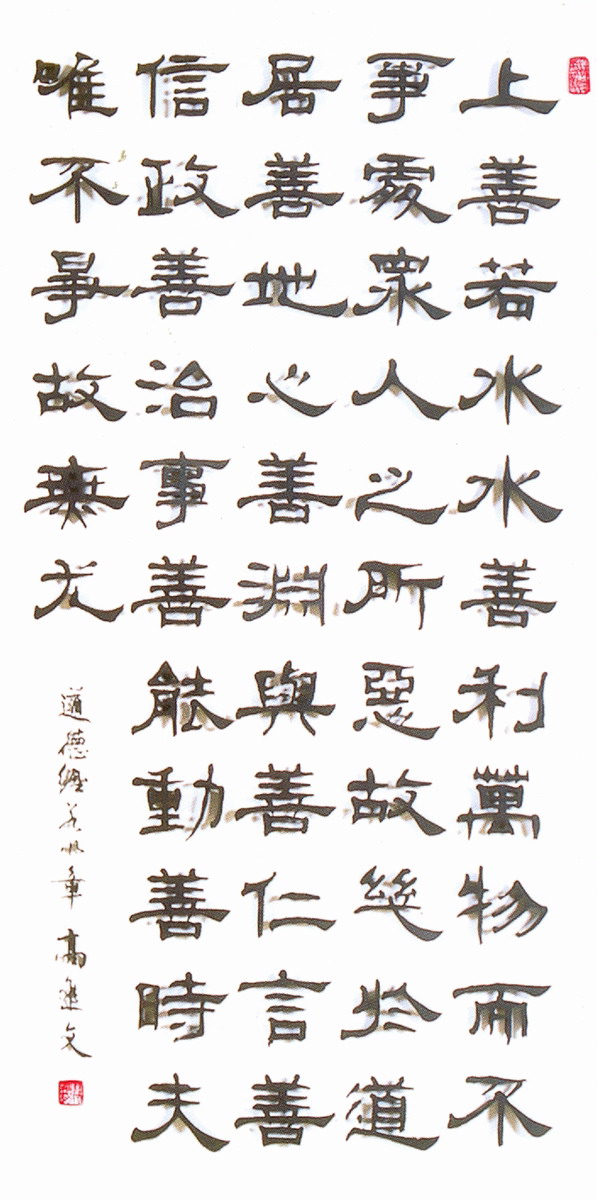 上善若水水善利萬物而不
爭處眾人之所惡故幾於道
居善地心善淵與善仁言善
信政善治事善能動善時夫
唯不爭故無尤
道德經若水章 高文